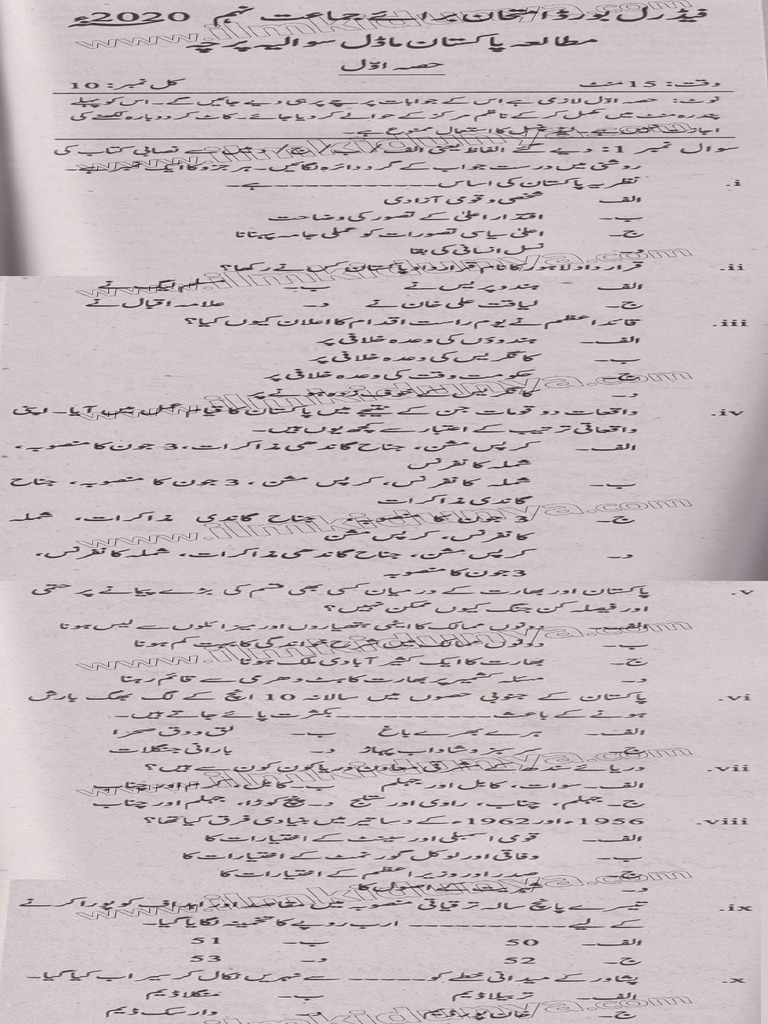 فیڈرل بورڈ امتحان برائے جماعت نہم 2020ء
مطالعہ پاکستان ماڈل سوالیہ پرچہ
حصہ اوّل
وقت: 15 منٹ کل نمبر: 10
نوٹ: حصہ اوّل لازمی ہے اس کے جوابات پرچے پر ہی دیے جائیں گے۔ اس کو پہلے
پندرہ منٹ میں مکمل کر کے ناظم مرکز کے حوالے کر دیا جائے۔ کاٹ کر دوبارہ لکھنے کی
اجازت نہیں ہے۔ لیڈ پنسل کا استعمال ممنوع ہے۔
سوال نمبر 1: دیے گئے الفاظ یعنی الف / ب / ج / د میں سے نصابی کتاب کی
روشنی میں درست جواب کے گرد دائرہ لگائیں۔ ہر جزو کا ایک نمبر ہے۔
i. نظریہ پاکستان کی اساس ـــــــــــــ ہے۔
الف۔ شخصی و قومی آزادی
ب۔ اقتدار اعلیٰ کے تصور کی وضاحت
ج۔ اعلیٰ سیاسی تصورات کو عملی جامہ پہنانا
د۔ نسل انسانی کی بقا
ii. قرارداد لاہور کا نام قرارداد پاکستان کس نے رکھا؟
الف۔ ہندو پریس نے ب۔ مسلم لیگ نے
ج۔ لیاقت علی خان نے د۔ علامہ اقبال نے
iii. قائداعظم نے یوم راست اقدام کا اعلان کیوں کیا؟
الف۔ ہندوؤں کی وعدہ خلافی پر
ب۔ کانگریس کی وعدہ خلافی پر
ج۔ حکومت وقت کی وعدہ خلافی پر
د۔ کانگریس کے
iv. واقعات دو قومات جن کے نتیجے میں پاکستان کا قیام عمل میں آیا۔ اپنی
واقعاتی ترتیب کے اعتبار سے کچھ یوں ہیں۔
الف۔ کرپس مشن، جناح گاندھی مذاکرات، 3 جون کا منصوبہ،
شملہ کانفرنس
ب۔ شملہ کانفرنس، کرپس مشن، 3 جون کا منصوبہ، جناح
گاندی مذاکرات
ج۔ 3 جون کا منصوبہ، جناح گاندی مذاکرات، شملہ
کانفرنس، کرپس مشن
د۔ کرپس مشن، جناح گاندھی مذاکرات، شملہ کانفرنس،
3 جون کا منصوبہ
v. پاکستان اور بھارت کے درمیان کسی بھی قسم کی بڑے پیمانے پر حتمی
اور فیصلہ کن جنگ کیوں ممکن نہیں؟
الف۔ دونوں ممالک کا ایٹمی ہتھیاروں اور میزائلوں سے لیس ہونا
ب۔ دونوں ممالک میں شرح خواندگی کا بہت کم ہونا
ج۔ بھارت کا ایک کثیر آبادی ملک ہونا
د۔ مسئلہ کشمیر پر بھارت کا ہٹ دھرمی سے قائم رہنا
vi. پاکستان کے جنوبی حصوں میں سالانہ 10 انچ کے لگ بھگ بارش
ہونے کے باعث ـــــــــــــ بکثرت پائے جاتے ہیں۔
الف۔ ہرے بھرے باغ ب۔ لق و دق صحرا
ج۔ سرسبز و شاداب پہاڑ د۔ بارانی جنگلات
vii. دریائے سندھ کے مشرقی معاون دریا کون کون سے ہیں؟
الف۔ سوات، کابل اور جہلم ب۔ کابل،
ج۔ جہلم، چناب، راوی اور ستلج د۔ پنج کوڑا، جہلم اور چناب
viii. 1956ء اور 1962ء کے دساتیر میں بنیادی فرق کیا تھا؟
الف۔ قومی اسمبلی اور سینٹ کے اختیارات کا
ب۔ وفاقی اور لوکل گورنمنٹ کے اختیارات کا
ج۔ صدر اور وزیراعظم کے اختیارات کا
د۔
ix. تیسرے پانچ سالہ ترقیاتی منصوبہ میں مقاصد اور اہداف کو پورا کرنے
کے لیے ـــــــــــــ ارب روپے کا تخمینہ لگایا گیا۔
الف۔ 50 ب۔ 51
ج۔ 52 د۔ 53
x. پشاور کے میدانی خطے کو ـــــــ سے نہریں نکال کر سیراب کیا گیا۔
الف۔ تربیلا ڈیم ب۔ منگلا ڈیم
ج۔ خان پور ڈیم د۔ وارسک ڈیم
www.ilmkidunya.com